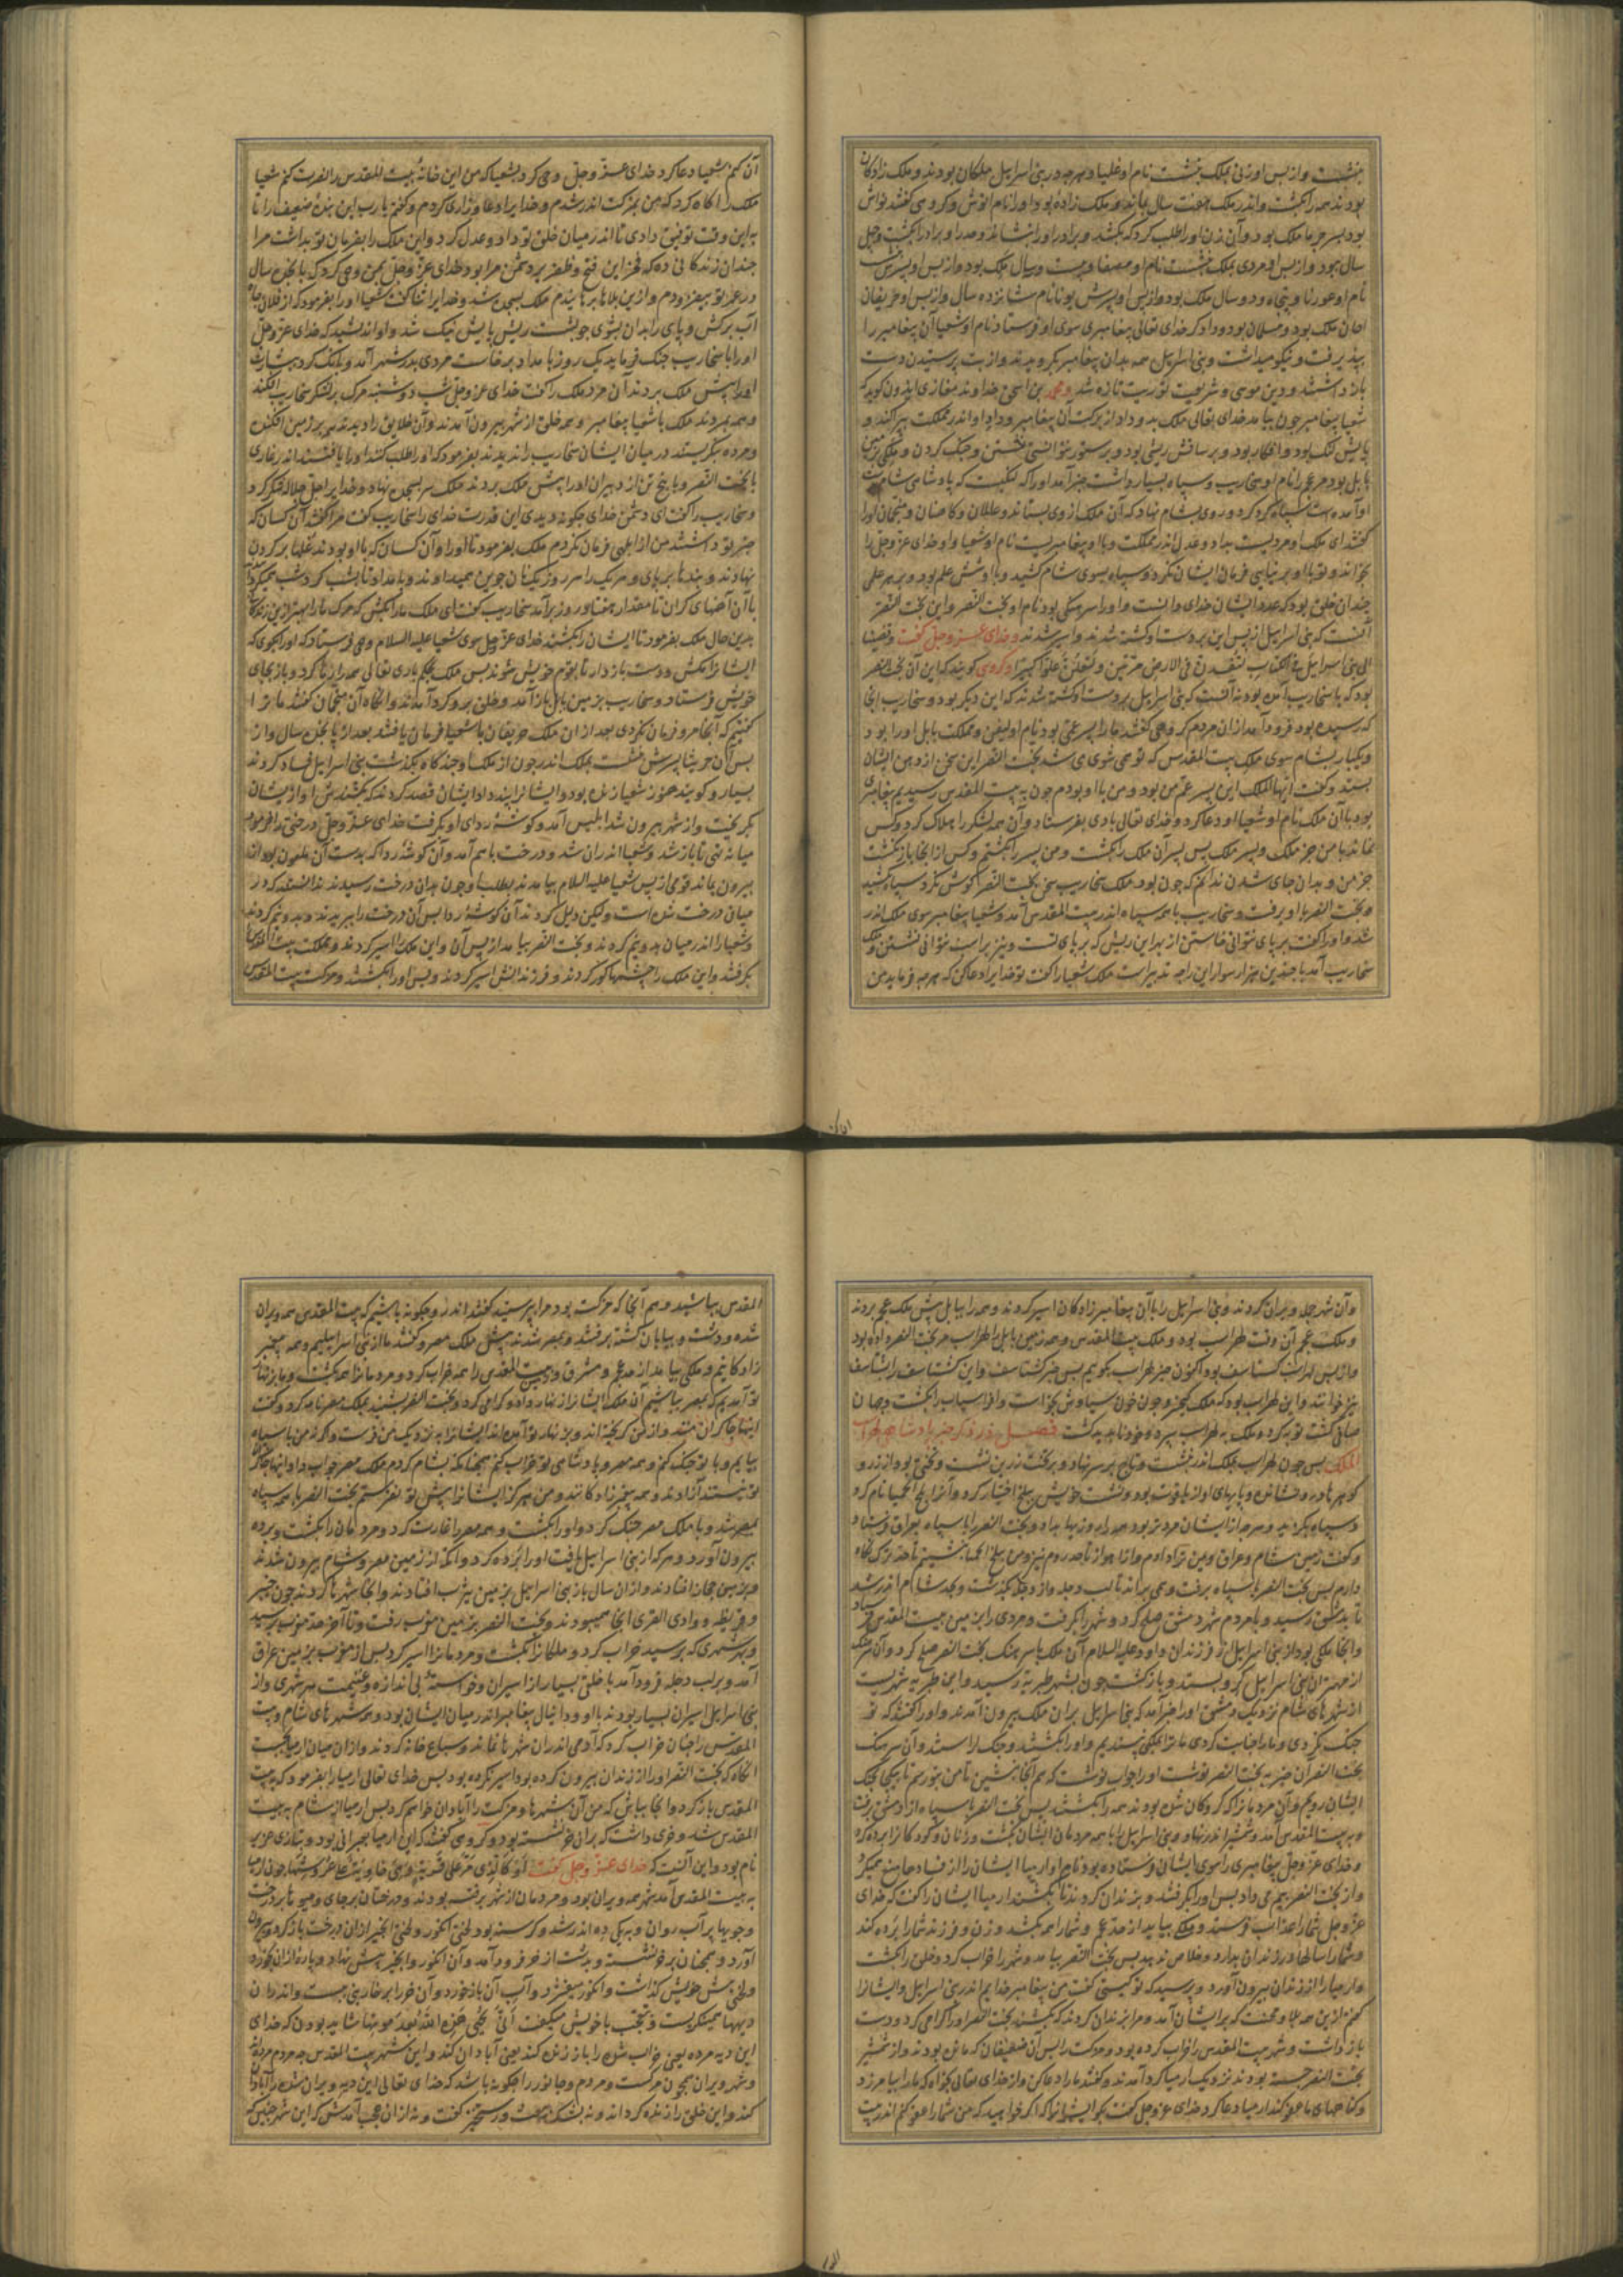 بنشست و از پس او زنی بملک بنشست نام او غلیا و هرچه در بنی اسرایل ملکان بودند و ملک زادکان
بودند همه را بکشت و اندر ملک هفت سال بماند و ملک زاده بود او را نام
بود پسر و آن زن او را طلب کرد که بکشد
سال ببود و از پس او مردی بملک بنشست نام او و سال ملک بود و از پس او پسرش
نام او و پنجاه و دو سال ملک بود و از پس او پسرش یوتام نام شانزده سال و از پس او حزیقا بن
احاز ملک بود و مسلمان بود و داد کر خدای تعالی پیغامبری سوی او فرستاد نام او شعیا آن پیغامبر را
بپذیرفت و نیکو میداشت و بنی اسرایل همه بدان پیغامبر بکرویدند و از بت پرستیدن دست
باز داشتند و دین موسی و شریعت توریت تازه شد و محمد بن اسحق خداوند مغازی ایدون کوید که
شعیا پیغامبر چون بیامد خدای تعالی ملک بدو داد از برکت آن پیغامبر و داد او اندر مملکت بپراکند و
پایش لنک بود و افکار بود و بر ساقش ریشی بود و بر ستور نتوانستی نشستن و جنک کردن و ملکی بزمین
بابل بود مر عجم را نام او سخاریب و سپاه بسیار داشت خبر آمد او را که
او آمده است سپاه کرد کرد و روی بشام نهاد که آن ملک از وی بستاند و عالمان و کاهنان و منجمان او را
کفتند ای ملک او مردیست بداد و عدل اندر مملکت و با او پیغامبریست نام او شعیا و او خدای عز و جل را
بخواند و تو با او بر نیایی فرمان ایشان نکرد و سپاه بسوی شام کشید و با او شش علم بود و بر هر علمی
چندان خلق بود که عدد ایشان خدای دانست و او را سرهنکی بود نام او بخت النصر و این بخت النصر
آنست که بنی اسرایل از پس این بر دست او کشته شدند و اسیر شدند و خدای عز و جل کفت و قضینا
الی بنی اسرایل فی الکتاب لتفسدن فی الارض مرتین و لتعلن علوا کبیرا و کروهی کویند که این آن بخت النصر
بود که با سخاریب آمده بود نه آنست که بنی اسرایل بر دست او کشته شدند که این دیکر بود و سخاریب انجا
که رسیده بود فرود آمد از آن مردم کروهی کفتند ما را پسر عمی بود نام او و مملکت بابل او را بود
ویکبار بشام سوی ملک بیت المقدس که تو می شوی می شد بخت النصر این سخن از دهن ایشان
بستد و کفت ایها الملک این پسر عم من بود و من با او بودم چون به بیت المقدس رسیدیم پیغامبری
بود با آن ملک نام او شعیا او دعا کرد و خدای تعالی بادی بفرستاد و آن همه لشکر را هلاک کرد و کس
نماند با من جز ملک و پسر ملک پس پسر آن ملک را بکشت و من پسر را بکشتم و کس از آنجا باز نکشت
جز من و بدان جای شدن ندانم که چون بود ملک سخاریب سخن بخت النصر کوش نکرد و سپاه کشید
و بخت النصر با او برفت و سخاریب با همه سپاه اندر بیت المقدس آمد و شعیا پیغامبر سوی ملک اندر
شد و او را کفت بر پای نتوانی خاستن از بهر این ریش که بر پای تست و نیز بر اسب نتوانی نشستن و ملک
سخاریب آمد با چندین هزار سوار این را چه تدبیر است ملک شعیا را کفت تو خدا را دعا کن که هر چه فرماید من
آن کنم شعیا دعا کرد خدای عز و جل وحی کرد بشعیا که من این خانهٔ بیت المقدس را نصرت کنم شعیا
ملک را اکاه کرد که من بمزکت اندر شدم و خدایرا دعا و زاری کردم و کفتم یا رب این بندهٔ ضعیف را تا
به این وقت توفیق دادی تا اندر میان خلق تو داد و عدل کرد و این ملک را بفرمان تو بداشت مر او را
چندان زندکانی ده که فخر این فتح و ظفر بر دشمن مرا بود خدای عز و جل بمن وحی کرد که پانجده سال
در عمر تو بیفزودم و از این بلاها برهانیدم ملک بسجده شد و خدایرا ثنا کفت شعیا او را بفرمود که از فلان چاه
آب برکش و پای را بدان بشوی چو بشست ریش پایش نیک شد و او اندیشید که خدای عز و جل
او را با سخاریب جنک فرماید یک روز بامداد برخاست مردی بدر شهر آمد و بانک کرد بشارت
او را پیش ملک بردند آن مرد ملک را کفت خدای عز و جل شب دوشینه مرک بر لشکر سخاریب افکند
و همه بمردند ملک با شعیا پیغامبر و همه خلق از شهر بیرون آمدند و آن خلایق را دیدند همه بر زمین افکنده
و مرده بنکریستند در میان ایشان سخاریب را ندیدند بفرمود که او را طلب کنند او را یافتند اندر غاری
با بخت النصر و با پنج تن از دبیران او را پیش ملک بردند ملک سر بسجده نهاد و خدایرا جل جلاله شکر کرد
و سخاریب را کفت ای دشمن خدای چکونه دیدی این قدرت خدای را سخاریب کفت مرا کفتند آن کسان که
خبر تو داشتند من از ابلهی فرمان نکردم ملک بفرمود تا او را و آن کسان که با او بودند غلها بر کردن
نهادند و بندها بر پای و هر یک را هر روز یک نان جوین میدادند و بامداد تا شب کرد شهر میکردانید
با آن آهنهای کران تا مقدار هفتاد روز برآمد سخاریب کفت ای ملک ما را بکش که مرک ما را بهتر از این زندکانی
بدین حال ملک بفرمود تا ایشان را بکشند خدای عز و جل سوی شعیا علیه السلام وحی فرستاد که او را بکوی که
ایشانرا مکش و دست باز دار تا بقوم خویش شوند پس ملک بحکم باری تعالی همه را رها کرد و باز بجای
خویش فرستاد و سخاریب بزمین بابل باز آمد و خلق بدو کرد آمدند و انکاه آن منجمان کفتند ما ترا
کفتیم که آنجا مرو فرمان نکردی بعد از آن ملک حزیقیا با شعیا فرمان یافتند بعد از پانجده سال و از
پس آن پسرش بنشست بملک اندر چون از ملک او چند کاه بکذشت بنی اسرایل فساد کردند
بسیار و کویند هنوز شعیا زنده بود و ایشانرا پند داد ایشان قصد کردند که بکشندش او از ایشان
بکریخت و از شهر بیرون شد ابلیس آمد و کوشهٔ ردای او بکرفت خدای عز و جل درختی را فرمود
میانه تهی تا باز شد و شعیا اندر آن شد و درخت باهم آمد و آن کوشهٔ ردا که بدست آن ملعون بود از
بیرون بماند قومی از پس شعیا علیه السلام بیامدند بطلب او چون بدان درخت رسیدند ندانستند که در
میان درخت شده است و لیکن دلیل کردند آن کوشهٔ ردا پس آن درخت را ببریدند و بدو نیم کردند
و شعیا را اندر میان بدو نیم کردند و بخت النصر بیامد از پس آن و این ملک را اسیر کردند و مملکت بیت المقدس
بکرفتند و این ملک را چشمها کور کردند و فرزندانش اسیر کردند و پس او را بکشتند و مزکت بیت المقدس
و آن شهر جمله ویران کردند و بنی اسرایل را با آن پیغامبر زادکان اسیر کردند و همه را ببابل پیش ملک عجم بردند
و ملک عجم آن وقت لهراسب بود و ملک بیت المقدس و همه زمین بابل را لهراسب مر بخت النصر داده بود
و از پس لهراسب کشتاسف بود اکنون خبر لهراسب بکوییم پس خبر کشتاسف و این کشتاسف را بشتاسف
نیز خوانند و این لهراسب بود که ملک کیخسرو چون خون سیاوش بخواست و افراسیاب را بکشت و جهان
صافی کشت توبه کرد و ملک به لهراسب سپرد و خود ناپدید کشت فصل در ذکر خبر پادشاهی لهراسب
الملک پس چون لهراسب بملک اندر نشست و تاج بر سر نهاد و بر تخت زرین نشست و تختی بود از زر و
کوهرها در و نشانده و پایهای او از یاقوت بود و نشست خویش ببلخ اختیار کرد و آنرا بلخ الحسنا نام کرد
و سپاه بکزید و هر چه از ایشان مردتر بود همه را روزیها بداد و بخت النصر را با سپاه بعراق فرستاد
و کفت زمین شام و عراق و یمن ترا دادم و از اهواز تا حد روم نیز و من ببلخ بنشینم تا حد ترک نکاه
دارم پس بخت النصر با سپاه برفت و می راند تا لب دجله و از دجله بکذشت و بحد شام اندر شد
تا بدمشق رسید و با مردم شهر دمشق صلح کرد و شهر را بکرفت و مردی را بزمین بیت المقدس فرستاد
و آنجا ملکی بود از بنی اسرایل از فرزندان داود علیه السلام آن ملک با سرهنک بخت النصر صلح کرد و آن سرهنک
از مهتران بنی اسرایل کرو بستد و باز کشت چون بشهر طبریه رسید و این طبریه شهریست
از شهرهای شام نزدیک دمشق او را خبر آمد که بنی اسرایل بر آن ملک بیرون آمدند و او را کفتند که تو
جنک نکردی و ما را خیانت کردی ما ترا بملکی نپسندیم و او را بکشتند و جنک را آراستند و آن سرهنک
بخت النصر آن خبر به بخت النصر نوشت او را جواب نوشت که هم آنجا بنشین تا من بتو رسم تا بیکجا بجنک
ایشان رویم و آن مردمانرا که کروکان شده بودند همه را بکشتند پس بخت النصر با سپاه از دمشق برفت
و به بیت المقدس آمد و شمشیر اندر نهاد و بنی اسرایل را با همه مردمان ایشان بکشت و زنان و کودکانرا برده کرد
و خدای عز و جل پیغامبری را سوی ایشان فرستاده بود نام او ارمیا ایشان را از فسادها منع میکرد
و از بخت النصر بیم می داد پس او را بکرفتند و بزندان کردند تا بکشند ارمیا ایشان را کفت که خدای
عز و جل شما را عذاب فرستد و ملکی بیاید از حد عجم و شما را همه بکشد و زن و فرزند شما را برده کند
و شما را سالها در زندان بدارد و خلاص ندهد پس بخت النصر بیامد و شهر را خراب کرد و خلق را بکشت
و ارمیا را از زندان بیرون آورد و بپرسید که تو کیستی کفت من پیغامبر خدایم اندر بنی اسرایل و ایشانرا
کفتم از این همه بلا و محنت که بر ایشان آمد و مرا بزندان کردند که بکشند بخت النصر او را کرامی کرد و دست
باز داشت و شهر بیت المقدس را خراب کرده بود و مزکت را پس آن ضعیفان که مانده بودند و از شمشیر
بخت النصر جسته بودند نزدیک ارمیا کرد آمدند و کفتند ما را دعا کن و از خدای تعالی بخواه که ما را بیامرزد
و کناههای ما عفو کند ارمیا دعا کرد خدای عز و جل کفت بکو ایشانرا که اکر خواهید که من شما را عفو کنم اندر بیت
المقدس بباشید و هم آنجا که مزکت بود مرا پرستید کفتند اندر و چکونه باشیم که بیت المقدس همه ویران
شده و دشت و بیابان کشته برفتند و بمصر شدند پیش ملک مصر و کفتند ما از بنی اسراییلیم و همه پیغمبر
زادکانیم و ملکی بیامد از حد عجم و مشرق و بیت المقدس را همه خراب کرد و مردمانرا همه بکشت و ما بزنهار
تو آمدیم که بمصر بباشیم آن ملک ایشانرا زنهار داد و کرامی کرد و بخت النصر بشنید بملک مصر نامه کرد و کفت
اینها چاکران منند و از من کریخته اند و بزنهار تو آمده اند ایشانرا به نزدیک من فرست و کرنه من با سپاه
بیایم و با تو جنک کنم و همه مصر و پادشاهی تو خراب کنم همچنانکه بشام کردم ملک مصر جواب داد اینها چاکران
تو نیستند آزادند و همه پیغمبر زادکانند و من هرکز ایشانرا پیش تو نفرستم بخت النصر با همه سپاه
بمصر شد و با ملک مصر جنک کرد و او را بکشت و همه مصر را غارت کرد و مردمان را بکشت و برده
بیرون آورد و هر که از بنی اسرایل یافت او را برده کرد و آنکه از زمین مصر و شام بیرون شدند
و بزمین حجاز افتادند و از آن سال باز بنی اسرایل بزمین یثرب افتادند و آنجا شهرها کردند چون خیبر
و قریظه و وادی القری آنجا میبودند و بخت النصر بزمین مغرب رفت و تا آخر حد مغرب برسید
و بهر شهری که برسید خراب کرد و ملکانرا بکشت و مردمانرا اسیر کرد پس از مغرب بزمین عراق
آمد و بر لب دجله فرود آمد با خلقی بسیار از اسیران و خواستهٔ بی اندازه و غنیمت هر شهری و از
بنی اسرایل اسیران بسیار بودند با او و دانیال پیغامبر اندر میان ایشان بود و همه شهرهای شام و بیت
المقدس را چنان خراب کرد که آدمی اندر آن شهرها نماند و سباع خانه کردند و از آن میان ارمیا بجست
آنکاه که بخت النصر او را از زندان بیرون کرده بود اسیر نکرده بود پس خدای تعالی ارمیا را بفرمود که بیت
المقدس باز کرد و آنجا بباش که من آن شهرها و مزکت را آبادان خواهم کرد پس ارمیا از شام به بیت
المقدس شد و خری داشت که بر آن خر نشسته بود و کروهی کفتند که این ارمیا بعبرانی بود و بتازی عزیر
نام بود و این آنست که خدای عز و جل کفت او کالذی مر علی قریة و هی خاویة علی عروشها چون ارمیا
به بیت المقدس آمد شهر همه ویران بود و مردمان از شهر رفته بودند و درختان بر جای و میوها بر درخت
و جویها پر آب روان و به یکی ده اندر شد و کرسنه بود لختی انکور و لختی انجیر از آن درخت باز کرد و بیرون
آورد و همچنان بر خر نشسته و بدشت از خر فرود آمد و آن انکور و انجیر پیش نهاد و پارهٔ از آن بخورد
و لختی پیش خویش کذاشت و انکور بیفشرد و آب آن باز خورد و آن خر را بر خار بنی ببست و اندر آن
دیهها مینکریست و بتعجب با خویش میکفت انی یحیی هذه الله بعد موتها شاید بودن که خدای
این دیه مرده یعنی خراب شده را باز زنده کند یعنی آبادان کند و این شهر بیت المقدس همه مردم مرده
و شهر ویران همچون مزکت و مردم و جانور را چکونه باشد که خدای تعالی این دیه ویران شده را آبادان
کند و این خلق را زنده کرداند و نه بشک رستخیز کفت و نه از آن عجب آمدش که این شهر چنین که